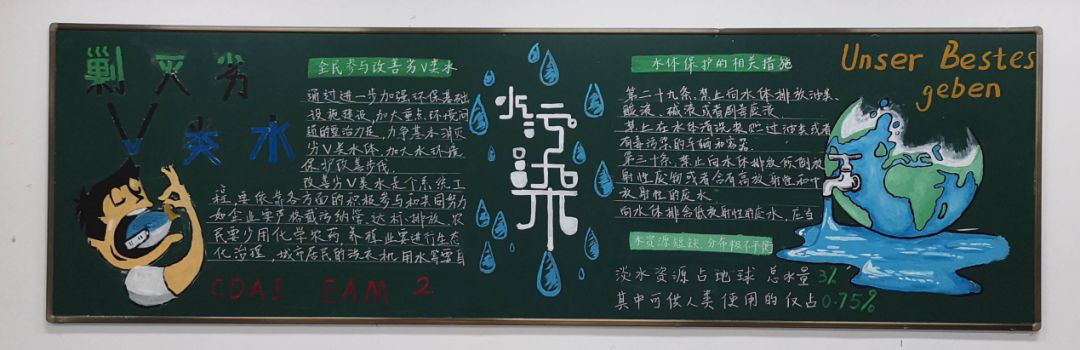 剿灭劣
V类水
全民参与改善劣V类水
通过进一步加强环保基础
设施建设,加大重点环境问
题的整治力度,力争基本消灭
劣V类水体,加大水环境
保护改善步伐.
改善劣V类水是个系统工
程,要依靠各方面的积极参与和共同努力
如企业要严格截污纳管,达标排放,农
民要少用化学农药,养殖业要进行生态
化治理,城市居民的洗衣机用水需要自
CDAI EAM 2
水污染
水体保护的相关措施
第二十九条,禁止向水体排放油类、
酸液、碱液或者剧毒废液.
禁止在水体清洗装贮过油类或者
有毒污染的车辆和容器.
第三十条,禁止向水体排放倾倒放
射性废物或者含有高放射性和中
放射性的废水
向水体排含低放射性的废水,应当
水资源短缺,分布极不平衡
淡水资源占地球总水量3%
其中可供人类使用的仅占0.75%
Unser Bestes
geben